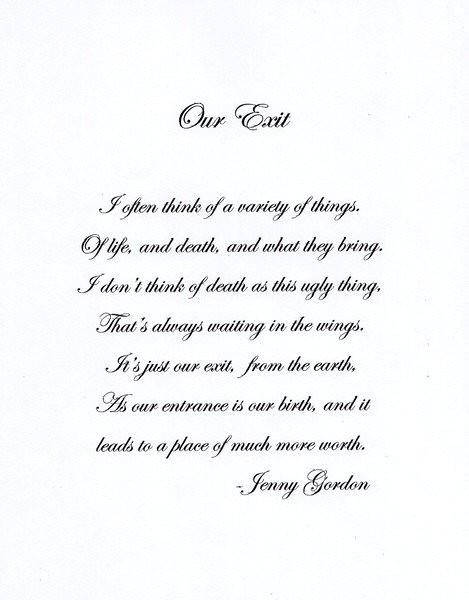 Our Exit
I often think of a variety of things.
Of life, and death, and what they bring.
I don't think of death as this ugly thing,
That's always waiting in the wings.
It's just our exit, from the earth,
As our entrance is our birth, and it
leads to a place of much more worth.
-Jenny Gordon